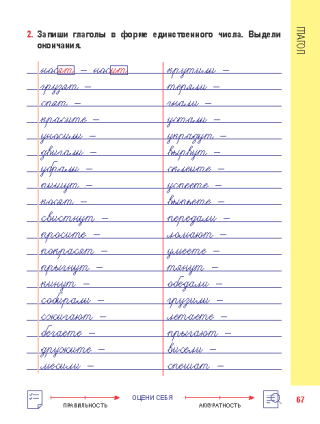 ГЛАГОЛ
2. Запиши глаголы в форме единственного числа. Выдели
окончания.
носят – носит
грузят –
спят –
красите –
уносили –
двигали –
убрали –
пишут –
носят –
свистнут –
просите –
покрасят –
прыгнут –
кинут –
собирали –
сжигают –
бегаете –
дружите –
месили –
крутили –
теряли –
гнали –
устали –
украдут –
вырвут –
склеите –
успеете –
выпьете –
передали –
ломают –
умеете –
тянут –
обедали –
грузили –
летаете –
прыгают –
висели –
спешат –
ПРАВИЛЬНОСТЬ
ОЦЕНИ СЕБЯ
АККУРАТНОСТЬ
67